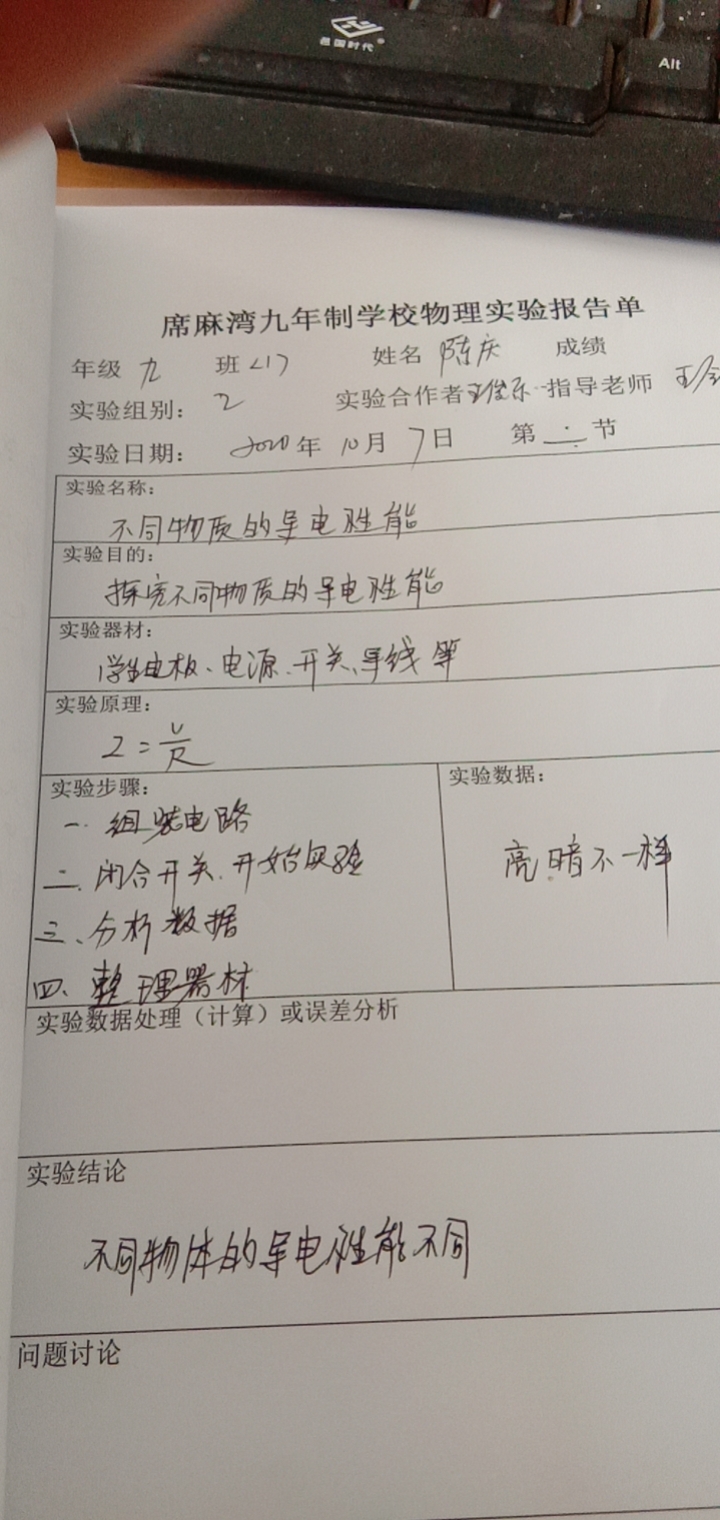 邑国时代
Alt
席麻湾九年制学校物理实验报告单
年级 九 班<1> 姓名 陈庆 成绩
实验组别： 2 实验合作者王俊东 指导老师 王
实验日期： 2020年 10月 7日 第 二 节
实验名称：
不同物质的导电性能
实验目的：
探究不同物质的导电性能
实验器材：
学生电板、电源、开关、导线等
实验原理：
I=U/R
实验步骤：
一．组装电路
二．闭合开关．开始实验
三、分析数据
四、整理器材
实验数据：
亮暗不一样
实验数据处理（计算）或误差分析
实验结论
不同物体的导电性能不同
问题讨论